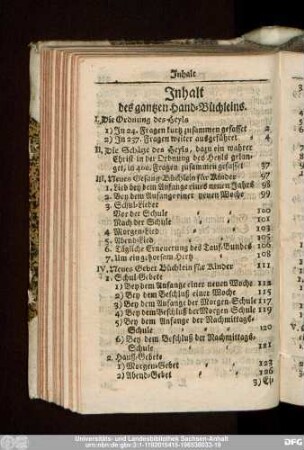 Inhalt
Inhalt
des gantzen Hand-Büchleins.
I. Die Ordnung des Heyls
1) In 24. Fragen kurtz zusammen gefasset 2
2) In 237. Fragen weiter ausgeführet 4
II. Die Schätze des Heyls, dazu ein wahrer
Christ in der Ordnung des Heyls gelan-
get, in 400. Fragen zusammen gefasset 37
III. Neues Gesang-Büchlein für Kinder 97
1. Lied bey dem Anfange eines neuen Jahres 98
2. Bey dem Anfange einer neuen Woche 99
3. Schul-Lieder
Vor der Schule 100
Nach der Schule 101
4. Morgen-Lied 103
5. Abend-Lied 105
6. Tägliche Erneuerung des Tauf-Bundes 106
7. Um ein gehorsam Hertz 108
IV. Neues Gebet-Büchlein für Kinder 111
1. Schul-Gebete
1) Bey dem Anfange einer neuen Woche 112
2) Bey dem Beschluß einer Woche 115
3) Bey dem Anfange der Morgen-Schule 117
4) Bey dem Beschluß der Morgen-Schule 119
5) Bey dem Anfange der Nachmittags-
Schule 120
6) Bey dem Beschluß der Nachmittags-
Schule 121
2. Hauß-Gebete
1) Morgen-Gebet 123
2) Abend-Gebet 126
Universitäts- und Landesbibliothek Sachsen-Anhalt
DFG